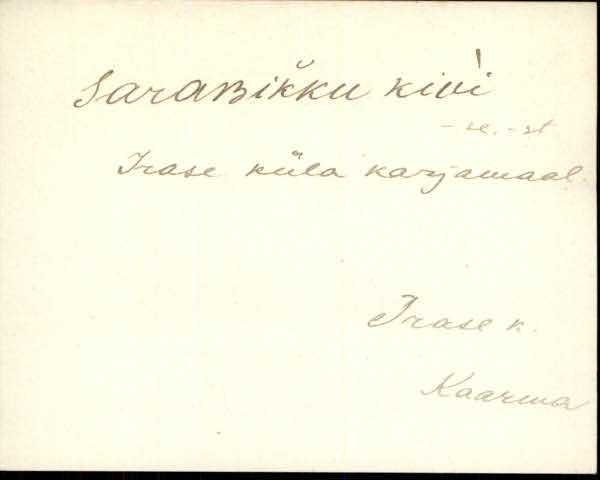 SaraBiǩku kivi
- se. - st
Irase küla karjamaal.
Irase k.
Kaarma